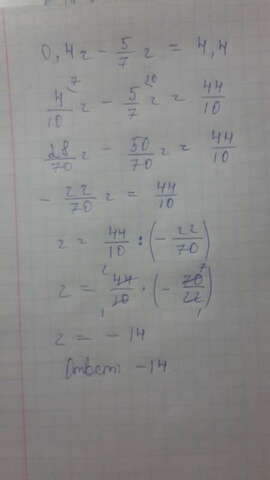 0,4z - 5/7 z = 4,4
4/10 z - 5/7 z = 44/10
28/70 z - 50/70 z = 44/10
- 22/70 z = 44/10
z = 44/10 : (- 22/70)
z = 44/10 · (- 70/22)
z = - 14
Ответ: -14